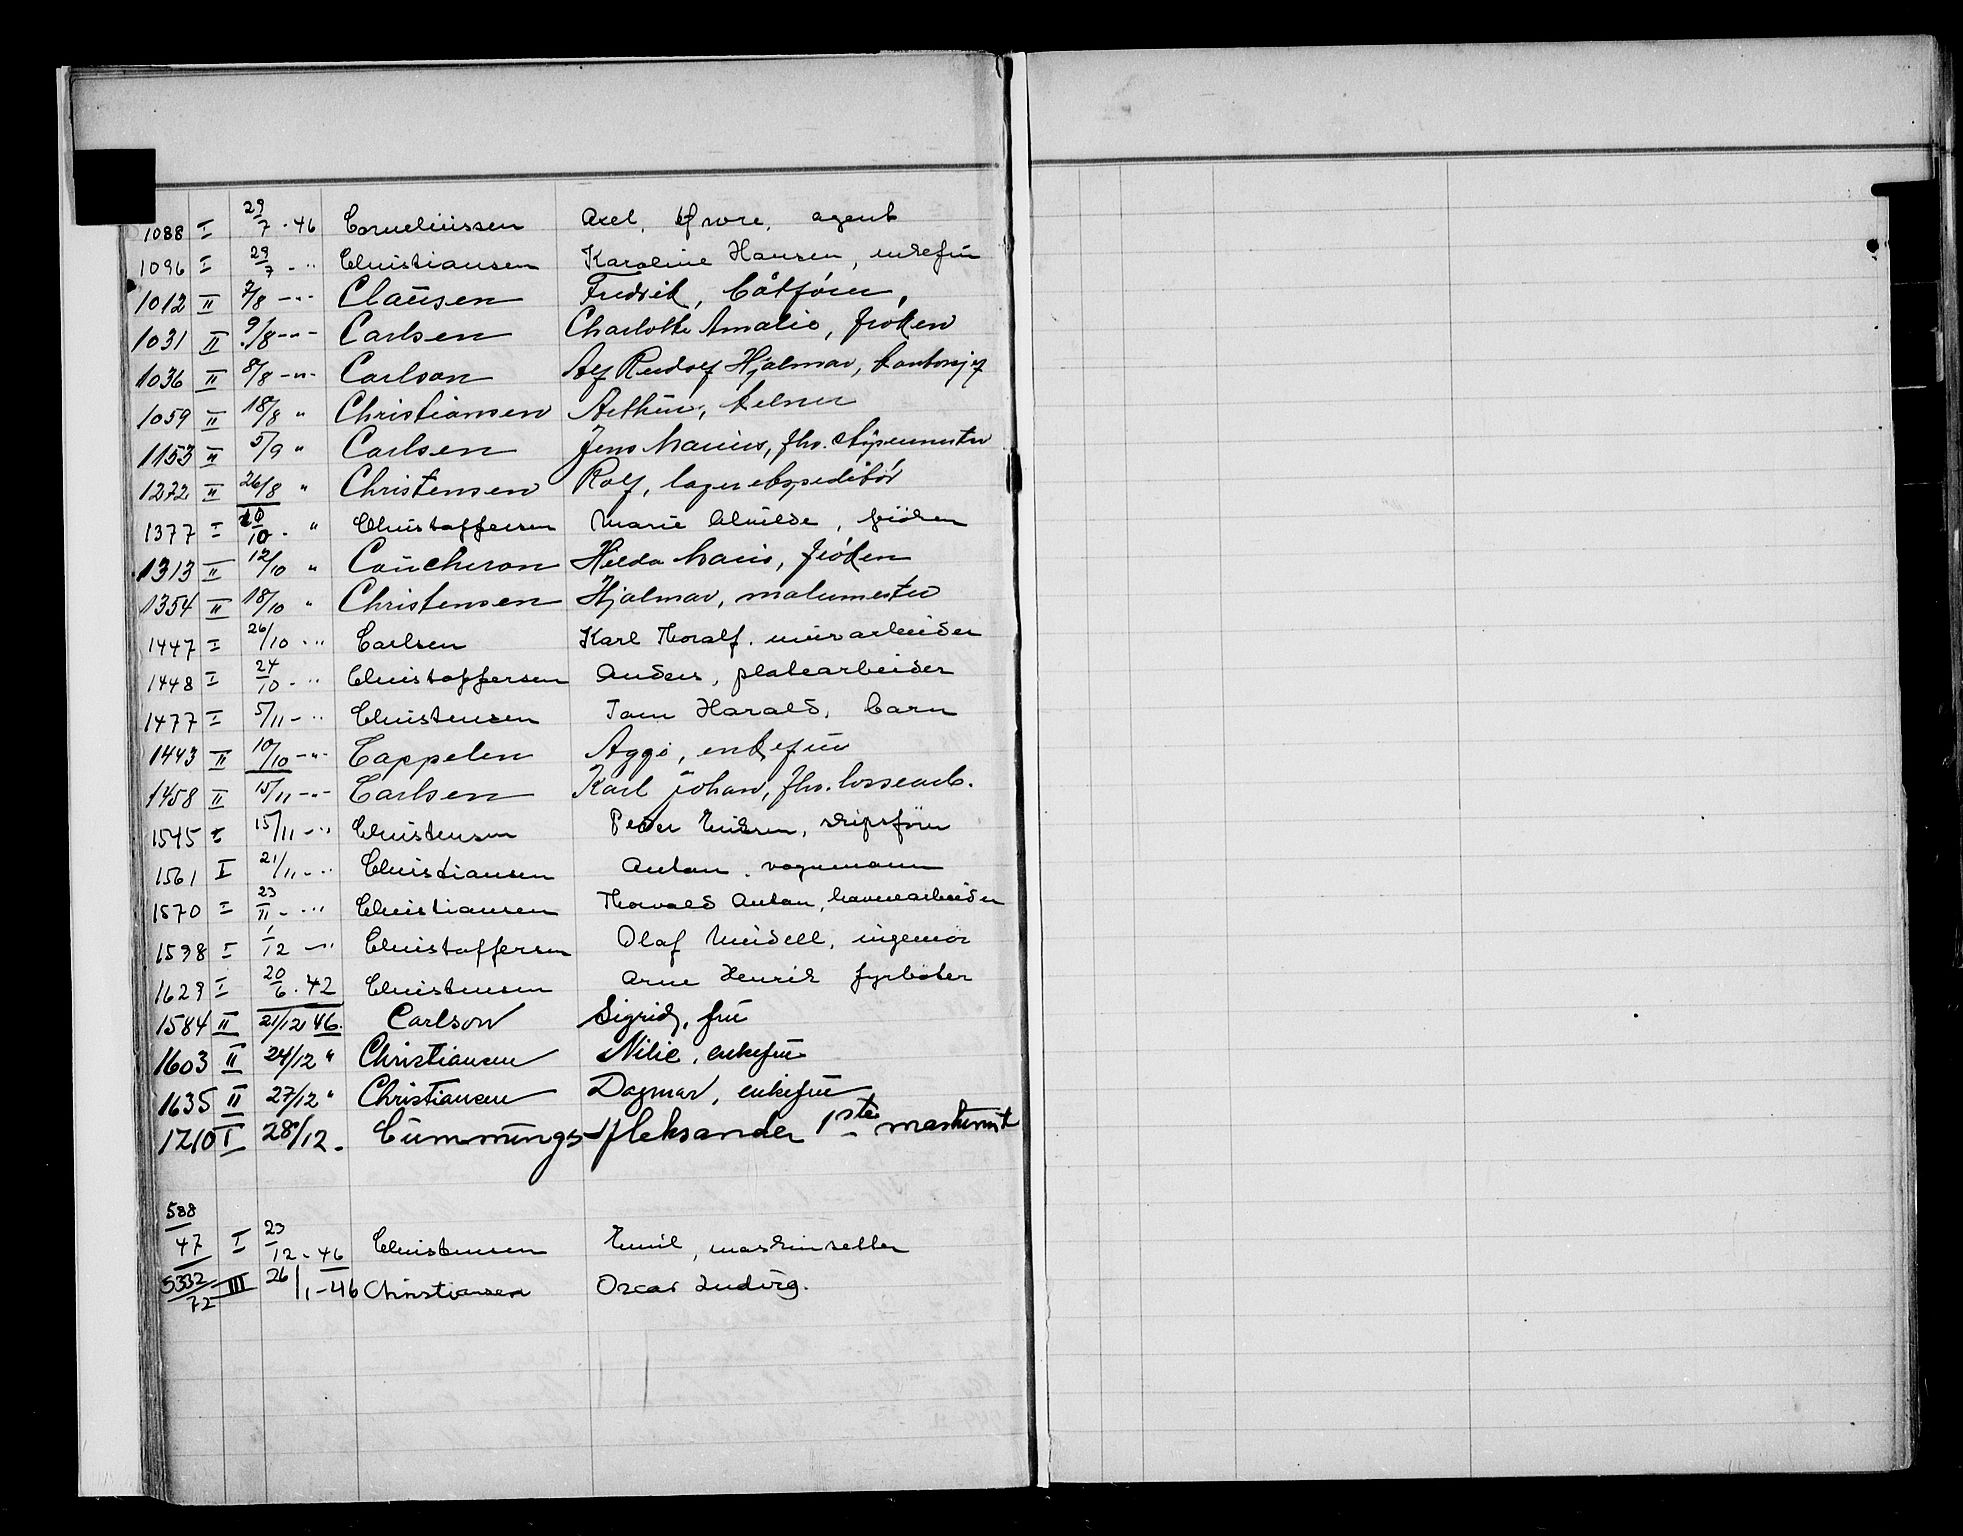 1088 I 29/7 - 46 Corneliussen Axel, agent
1096 I 29/7 - " Christiansen Karoline Hansen, enkefru
1012 II 7/8 - " - Clausen Fredrik, båtfører,
1031 II 9/8 - " - Carlsen Charlotte Amalie, frøken
1036 II 8/8 - " - Carlson Alf Rudolf Hjalmar, kontorsjef
1059 II 18/8 " Christiansen Arthur, kelner
1153 II 5/9 " Carlsen Jens Marius, fhv. støpermester
1272 II 26/8 " Christensen Rolf, lagerekspeditör
1377 I 10/10 - " Christoffersen Marie Alvilde, fröken
1313 II 12/10 " Coucheron Hilda Marie, frøken
1354 II 18/10 " Christensen Hjalmar, malermester
1447 I 26/10 - " Carlsen Karl Thoralf. murarbeider
1448 I 24/10 - " Christoffersen Anders, platearbeider
1477 I 5/11 - " Christensen Tom Harald, barn
1443 II 10/10 - " - Cappelen Aggi, enkefru
1458 II 15/11 - " - Carlsen Karl Johan, fhv. lossearb.
1545 I 15/11 - " Christensen Peder Eriksen, skipsfører
1561 I 21/11 - " Christiansen Anton. vognmann
1570 I 23/11 - " Christiansen Thorvald Anton, havnearbeider
1598 I 1/12 - " Christoffersen Olaf Meidell, ingeniør
1629 I 20/6 - 42 Christensen Arne Henrik fyrbøter
1584 II 21/12 46. Carlson Sigrid, fru
1603 II 24/12 " Christiansen Nilie, enkefru
1635 II 27/12 " Christiansen Dagmar, enkefru
1210 I 28/12 - Cummings Aleksander 1ste maskinist
588/47 I 23/12 - 46 Christensen Emil, maskinsetter
5332/72 III 26/1 - 46 Christiansen Oscar Ludvig.